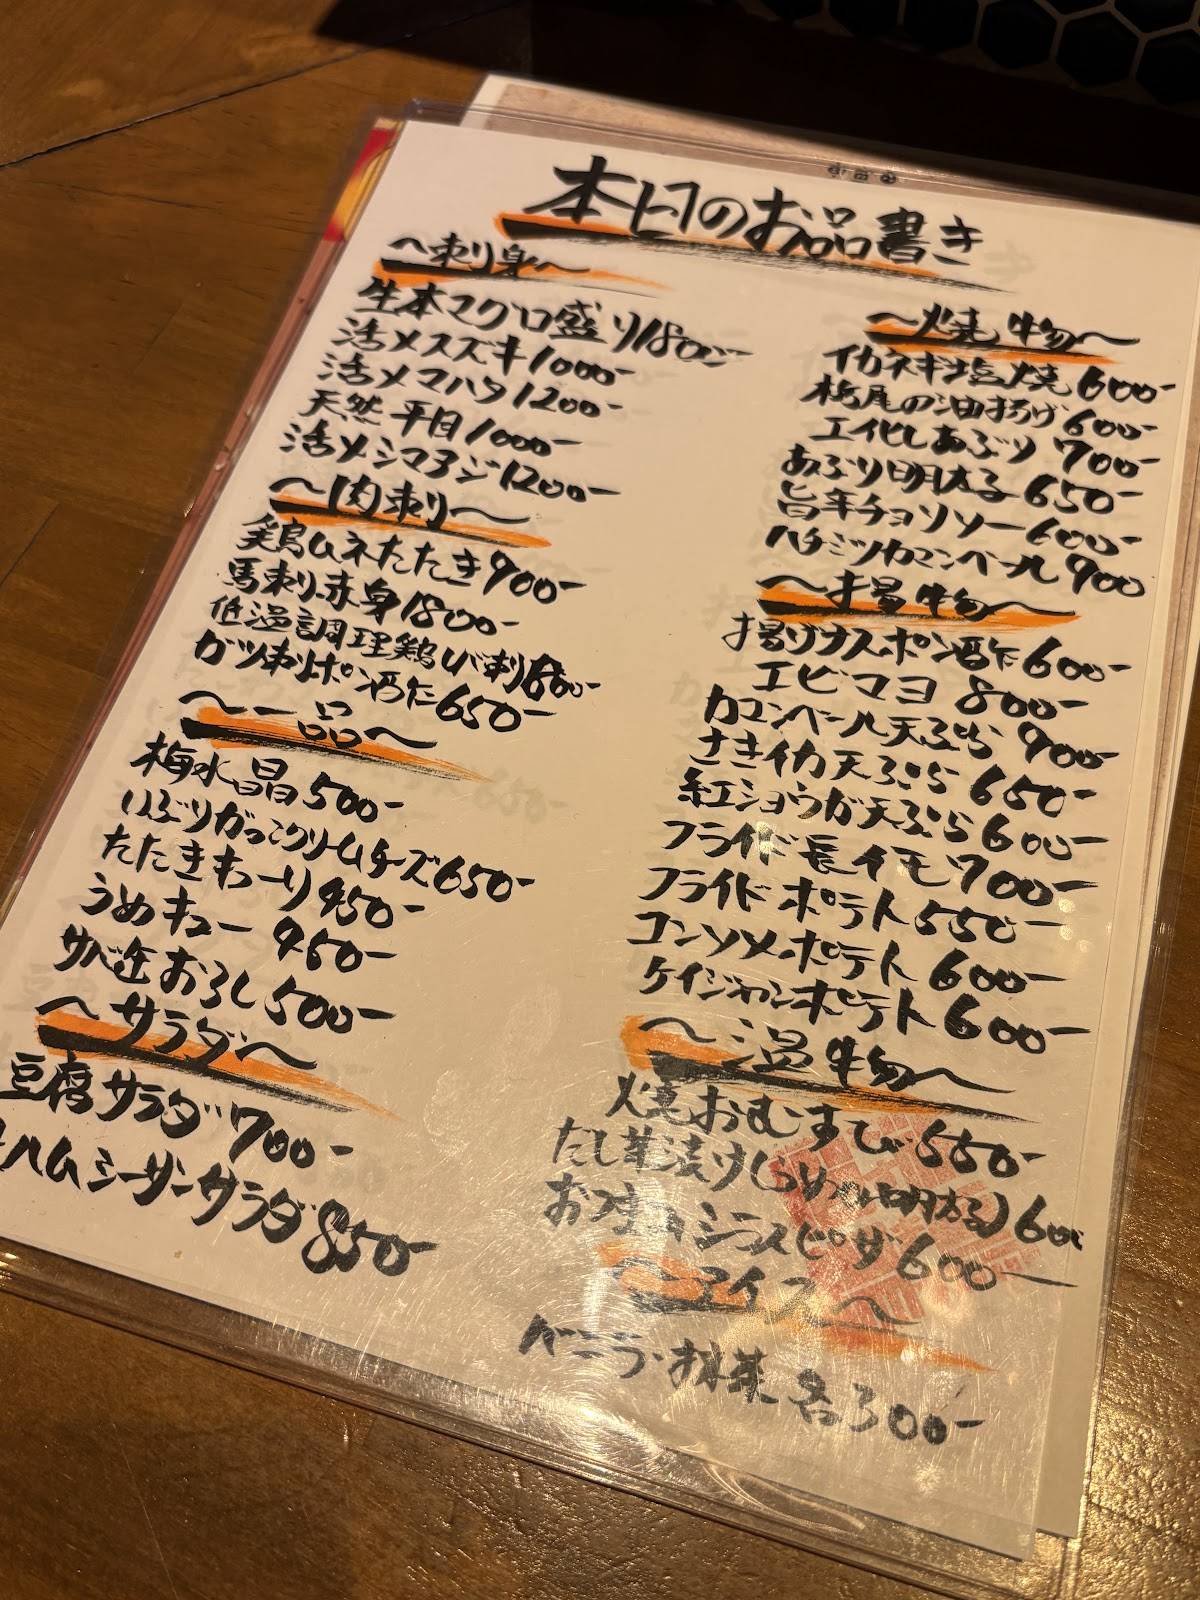 本日のお品書き
〜刺り身〜
生本マグロ盛り1800-
活〆スズキ1000-
活〆マハタ1200-
天然平目1000-
活〆シマアジ1200-
〜肉刺り〜
鶏ムネたたき900-
馬刺り赤身1800-
低温調理鶏レバ刺り
ガツ刺りポン酢650-
〜一品〜
梅水晶500-
いぶりがっこクリームチーズ650-
たたききゅーり450-
うめキュー 450-
サバ缶おろし500-
〜サラダ〜
豆腐サラダ700-
生ハムシーザーサラダ850-
〜焼き物〜
イカネギ塩焼600-
栃尾の油揚げ600-
エイヒレあぶり700-
あぶり明太子650-
旨辛チョリソー600-
ハチミツカマンベール900
〜揚げ物〜
揚げナスポン酢600-
エビマヨ 800-
カマンベール天ぷら900-
さきイカ天ぷら650-
紅ショウガ天ぷら600-
フライド長イモ700-
フライドポテト550-
コンソメポテト600-
ケイジャンポテト600-
〜温物〜
焼おむすび550-
だし茶漬け(うめor明太子)600
おつまみシラスピザ600-
〜アイス〜
バニラ・抹茶 各300-